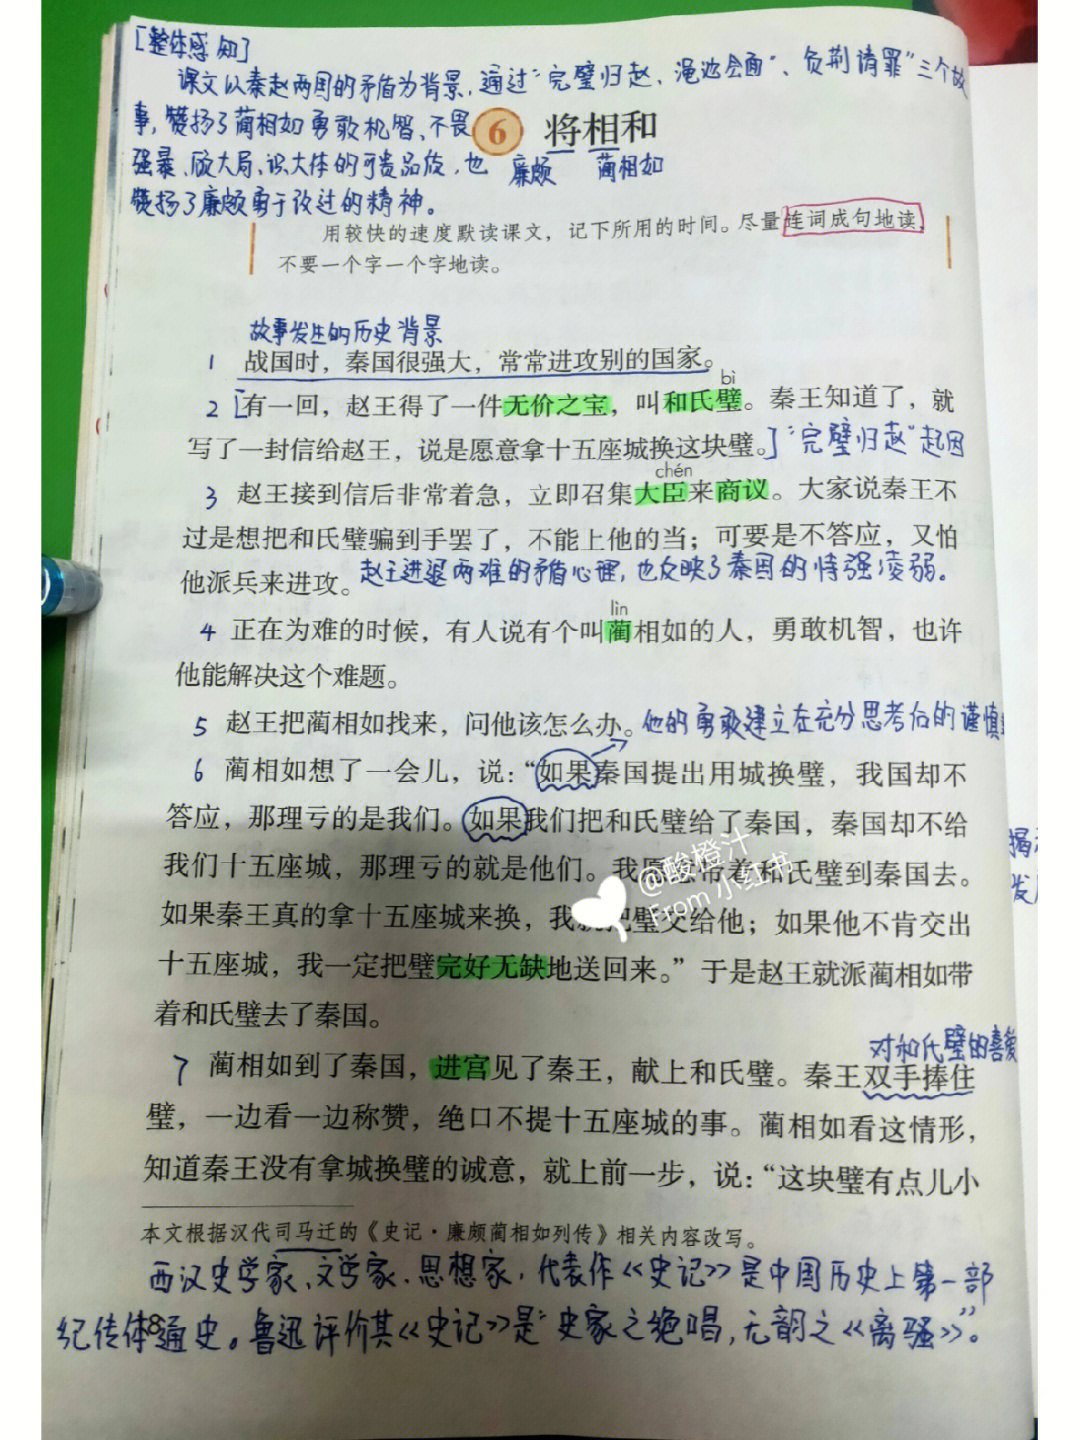 [整体感知]
课文以秦赵两国的矛盾为背景，通过“完璧归赵、渑池会面”、负荆请罪”三个故
事，赞扬了蔺相如勇敢机智、不畏
强暴、顾大局、识大体的可贵品质，也
赞扬了廉颇勇于改过的精神。
6 将相和
廉颇 蔺相如
用较快的速度默读课文，记下所用的时间。尽量连词成句地读，
不要一个字一个字地读。
故事发生的历史背景
1 战国时，秦国很强大，常常进攻别的国家。
bì
2 [有一回，赵王得了一件无价之宝，叫和氏璧。秦王知道了，就
写了一封信给赵王，说是愿意拿十五座城换这块璧。] “完璧归赵”起因
chén
3 赵王接到信后非常着急，立即召集大臣来商议。大家说秦王不
过是想把和氏璧骗到手罢了，不能上他的当；可要是不答应，又怕
他派兵来进攻。 赵王进退两难的矛盾心理，也反映了秦国的恃强凌弱。
lìn
4 正在为难的时候，有人说有个叫蔺相如的人，勇敢机智，也许
他能解决这个难题。
5 赵王把蔺相如找来，问他该怎么办。 他的勇敢建立在充分思考后的谨慎
6 蔺相如想了一会儿，说：“如果秦国提出用城换璧，我国却不
答应，那理亏的是我们。如果我们把和氏璧给了秦国，秦国却不给
我们十五座城，那理亏的就是他们。我愿意带着和氏璧到秦国去。
如果秦王真的拿十五座城来换，我就把璧交给他；如果他不肯交出
十五座城，我一定把璧完好无缺地送回来。”于是赵王就派蔺相如带
着和氏璧去了秦国。
对和氏璧的喜爱
7 蔺相如到了秦国，进宫见了秦王，献上和氏璧。秦王双手捧住
璧，一边看一边称赞，绝口不提十五座城的事。蔺相如看这情形，
知道秦王没有拿城换璧的诚意，就上前一步，说：“这块璧有点儿小
本文根据汉代司马迁的《史记·廉颇蔺相如列传》相关内容改写。
西汉史学家、文学家、思想家，代表作《史记》是中国历史上第一部
纪传体通史。鲁迅评价其《史记》是“史家之绝唱，无韵之《离骚》”。
8
@酸橙汁
From 小红书